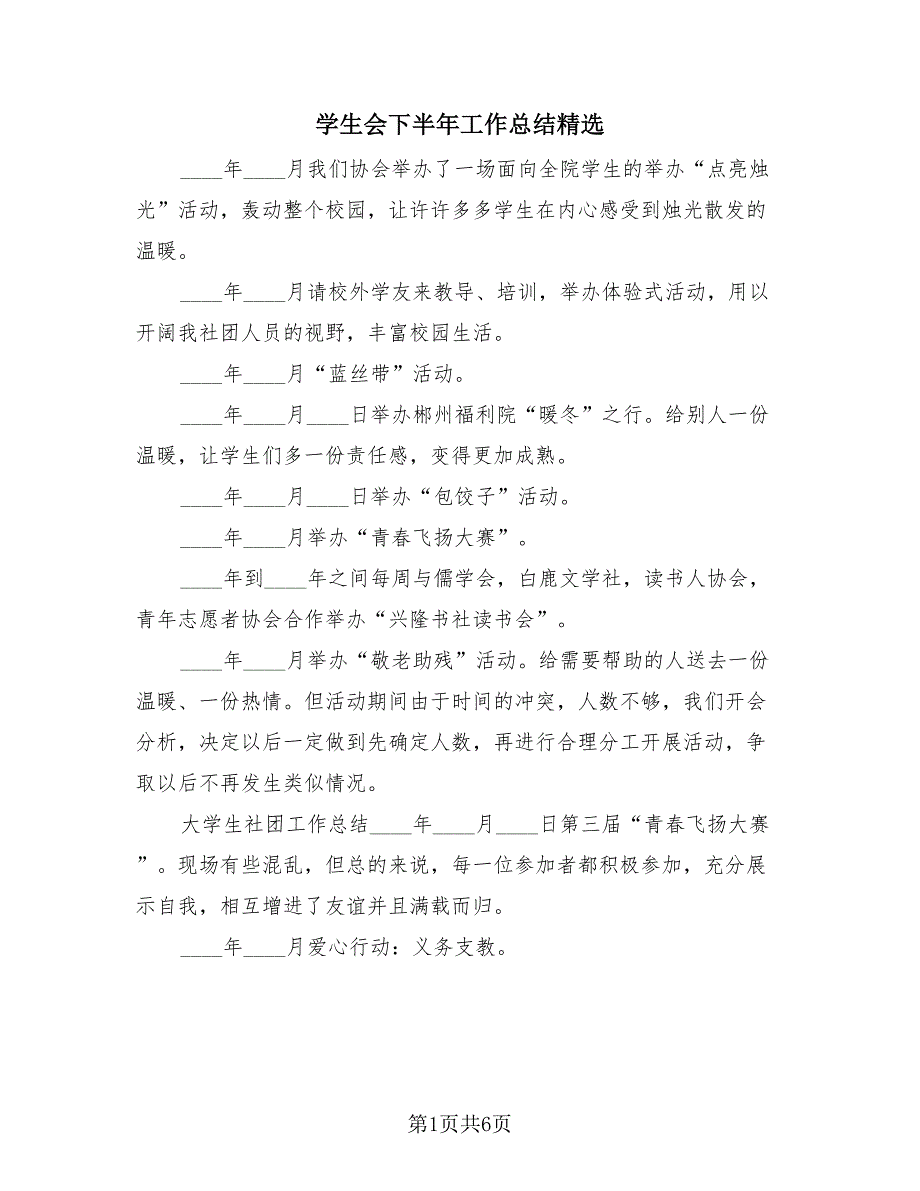 学生会下半年工作总结精选
____年____月我们协会举办了一场面向全院学生的举办“点亮烛
光”活动，轰动整个校园，让许许多多学生在内心感受到烛光散发的
温暖。
____年____月请校外学友来教导、培训，举办体验式活动，用以
开阔我社团人员的视野，丰富校园生活。
____年____月“蓝丝带”活动。
____年____月____日举办郴州福利院“暖冬”之行。给别人一份
温暖，让学生们多一份责任感，变得更加成熟。
____年____月____日举办“包饺子”活动。
____年____月举办“青春飞扬大赛”。
____年到____年之间每周与儒学会，白鹿文学社，读书人协会，
青年志愿者协会合作举办“兴隆书社读书会”。
____年____月举办“敬老助残”活动。给需要帮助的人送去一份
温暖、一份热情。但活动期间由于时间的冲突，人数不够，我们开会
分析，决定以后一定做到先确定人数，再进行合理分工开展活动，争
取以后不再发生类似情况。
大学生社团工作总结____年____月____日第三届“青春飞扬大赛
”。现场有些混乱，但总的来说，每一位参加者都积极参加，充分展
示自我，相互增进了友谊并且满载而归。
____年____月爱心行动：义务支教。
第1页共6页